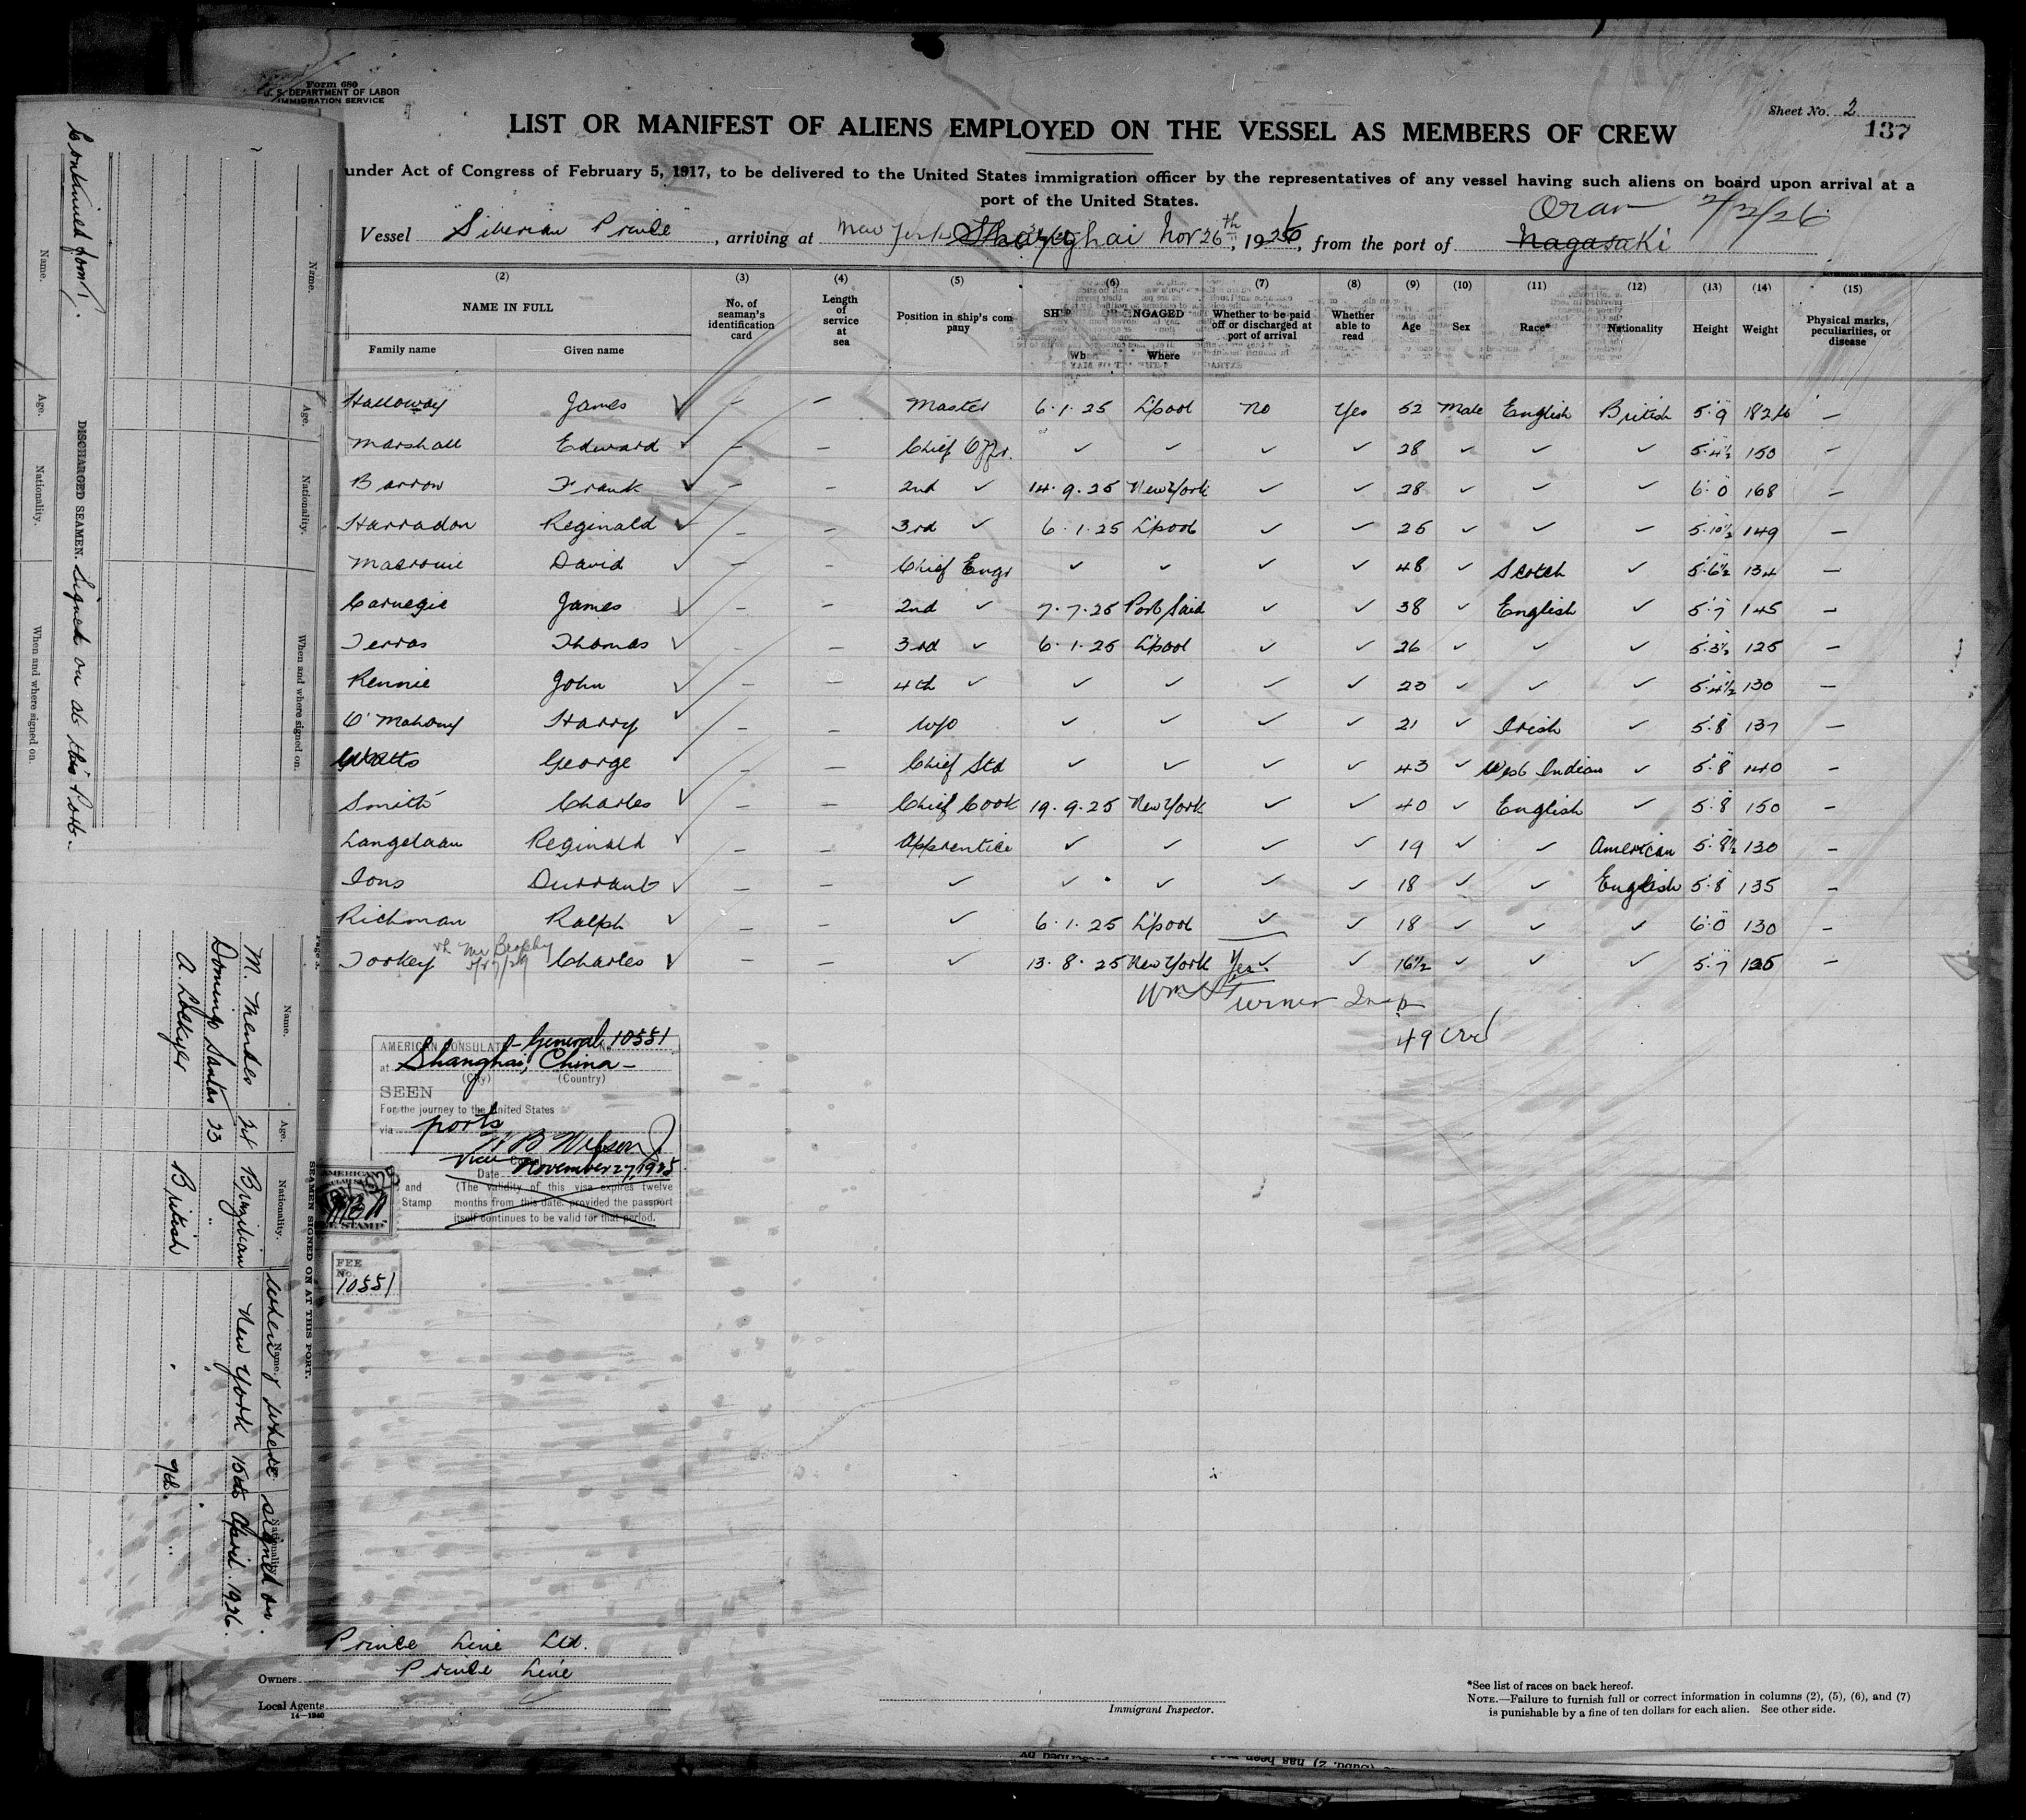 Form 680
U. S. DEPARTMENT OF LABOR
IMMIGRATION SERVICE
Sheet No. 2
137
LIST OR MANIFEST OF ALIENS EMPLOYED ON THE VESSEL AS MEMBERS OF CREW
under Act of Congress of February 5, 1917, to be delivered to the United States immigration officer by the representatives of any vessel having such aliens on board upon arrival at a
port of the United States.
Oran 2/2/26
Vessel "Siberian Prince", arriving at New York Shanghai Nov 26th, 1926, from the port of Nagasaki
(2) (3) (4) (5) (6) (7) (8) (9) (10) (11) (12) (13) (14) (15)
NAME IN FULL
Family name Given name
No. of seaman's identification card
Length of service at sea
Position in ship's company
ENGAGED
Where
Whether to be paid off or discharged at port of arrival
Whether able to read
Age Sex Race* Nationality Height Weight
Physical marks, peculiarities, or disease
Halloway James ✓ — — Master 6.1.25 L'pool No Yes 52 Male English British 5.9 182 lb —
Marshall Edward ✓ — — Chief Offr. ✓ ✓ ✓ ✓ 28 ✓ ✓ ✓ 5.4½ 150 —
Barrow Frank ✓ — — 2nd ✓ 14.9.25 New York ✓ ✓ 28 ✓ ✓ ✓ 6.0 168 —
Harradon Reginald ✓ — — 3rd ✓ 6.1.25 L'pool ✓ ✓ 25 ✓ ✓ ✓ 5.10½ 149 —
Macronie David ✓ — — Chief Engr ✓ ✓ ✓ ✓ 48 ✓ Scotch ✓ 5.6½ 134 —
Carnegie James ✓ — — 2nd ✓ 7.7.25 Port Said ✓ ✓ 38 ✓ English ✓ 5.7 145 —
Terras Thomas ✓ — — 3rd ✓ 6.1.25 L'pool ✓ ✓ 26 ✓ ✓ ✓ 5.3½ 125 —
Rennie John ✓ — — 4th ✓ ✓ ✓ ✓ ✓ 23 ✓ ✓ ✓ 5.4½ 130 —
O'Mahony Harry ✓ — — W/O ✓ ✓ ✓ ✓ 21 ✓ Irish ✓ 5.8 137 —
Watts George ✓ — — Chief Std ✓ ✓ ✓ ✓ 43 ✓ West Indian ✓ 5.8 140 —
Smith Charles ✓ — — Chief Cook 19.9.25 New York ✓ ✓ 40 ✓ English ✓ 5.8 150 —
Langelaan Reginald ✓ — — Apprentice ✓ ✓ ✓ ✓ 19 ✓ ✓ American 5.8½ 130 —
Ions Durrant ✓ — — ✓ ✓ ✓ ✓ ✓ 18 ✓ ✓ English 5.8 135 —
Richman Ralph ✓ — — ✓ 6.1.25 L'pool ✓ ✓ 18 ✓ ✓ ✓ 6.0 130 —
Tookey Charles ✓ — — ✓ 13.8.25 New York Yes ✓ ✓ 16½ ✓ ✓ ✓ 5.7 125 —
Wm Turner Insp
49 Crd
AMERICAN CONSULATE General No. 10551
at Shanghai, China —
(City) (Country)
SEEN
For the journey to the United States
via ports
Vice
Date November 27, 1925
(The validity of this visa expires twelve
months from this date, provided the passport
itself continues to be valid for that period.
and
Stamp
FEE
No.
10551
Prince Line Ltd.
Owners Prince Line
Local Agents
14—1240
Immigrant Inspector.
*See list of races on back hereof.
NOTE.—Failure to furnish full or correct information in columns (2), (5), (6), and (7)
is punishable by a fine of ten dollars for each alien. See other side.
Continued from 1.
DISCHARGED SEAMEN. Signed on at this Port.
Name. Age. Nationality. When and where signed on.
Name. Age. Nationality. When and where signed on.
SEAMEN SIGNED ON AT THIS PORT.
Name. Age. Nationality. When & where signed on.
M. Mendes Brazilian New York 15th April 1926.
Domingo Santos 23 "
A. Lockyer British 9th. "